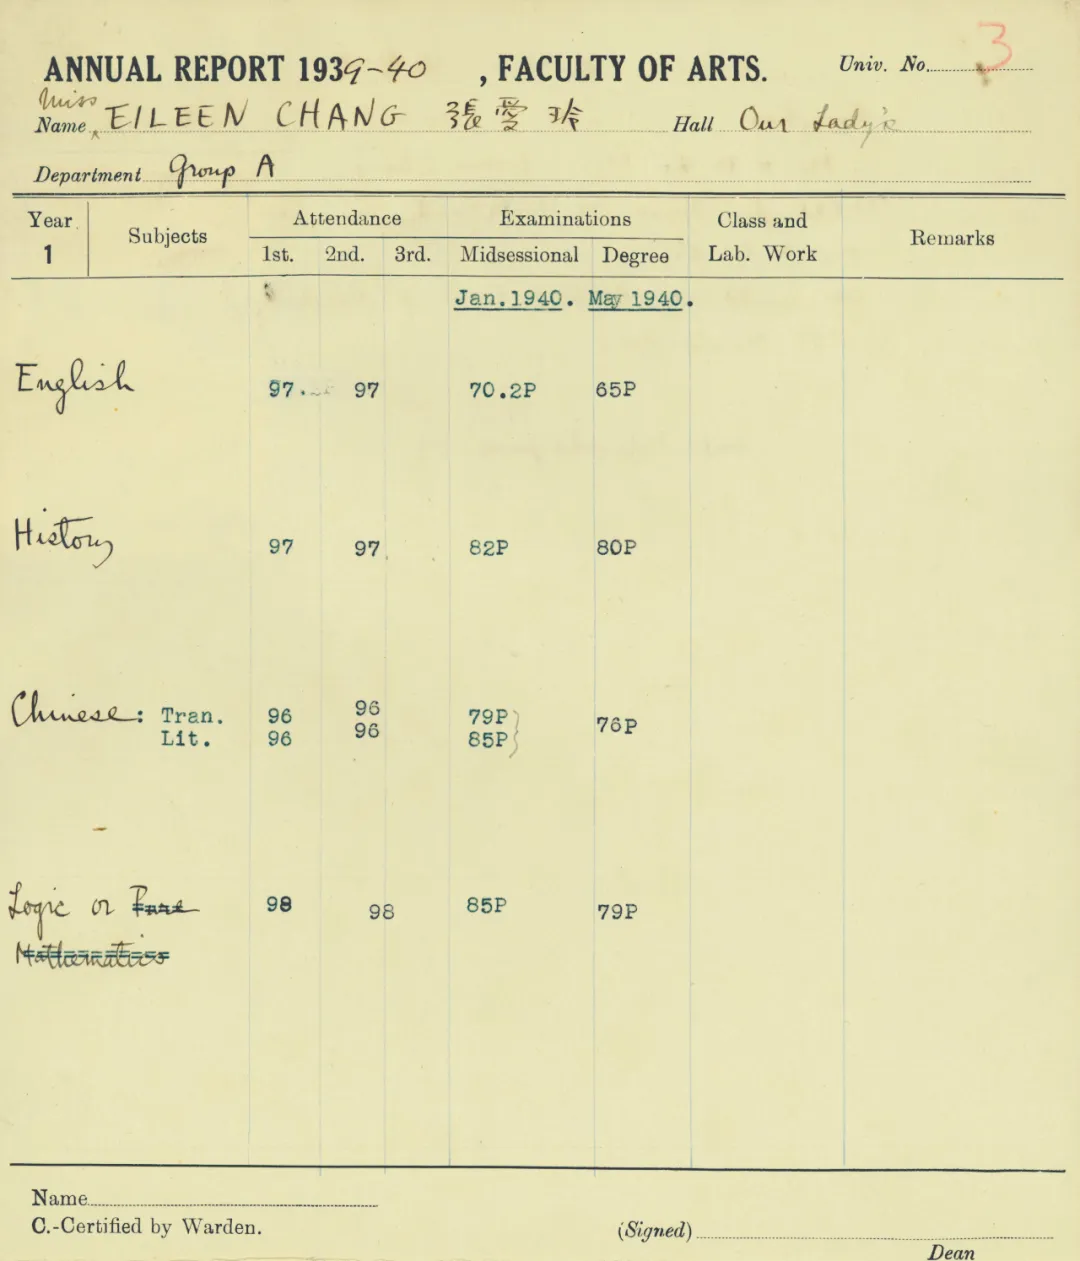 3
ANNUAL REPORT 1939-40, FACULTY OF ARTS. Univ. No.
Miss
Name EILEEN CHANG 張愛玲 Hall Our Lady's
Department Group A
Year Subjects Attendance Examinations Class and Remarks
1 1st. 2nd. 3rd. Midsessional Degree Lab. Work
Jan.1940. May 1940.
English 97. 97 70.2P 65P
History 97 97 82P 80P
Chinese: Tran. 96 96 79P 76P
Lit. 96 96 85P
Logic or Pure 98 98 85P 79P
Mathematics
Name
C.-Certified by Warden. (Signed)
Dean